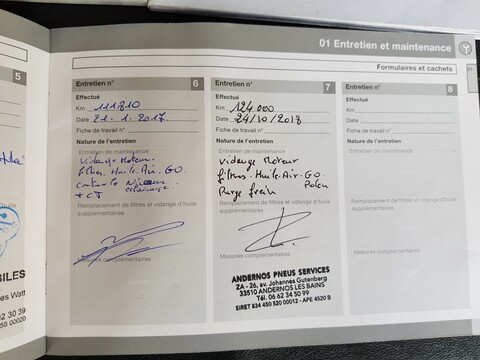 01 Entretien et maintenance
Formulaires et cachets
01
5
BILES
es Watt
02 30 39
58 00020
Entretien n° 6
Effectué
Km 111810
Date 21-1-2017
Fiche de travail n°
Nature de l'entretien
Entretien de maintenance
Vidange Moteur
filtres. Huile. Air. GO.
controle Niveaux
eclairage
+ CT
Remplacement de filtres et vidange d'huile
supplémentaires
Mesures complémentaires
Entretien n° 7
Effectué
Km 124.000
Date 24/10/2018
Fiche de travail n°
Nature de l'entretien
Entretien de maintenance
vidange Moteur
filtres. Huile. Air. GO.
Polen
Purge frein
Remplacement de filtres et vidange d'huile
supplémentaires
Mesures complémentaires
ANDERNOS PNEUS SERVICES
ZA - 26, av. Johannes Gutenberg
33510 ANDERNOS LES BAINS
Tél. 06 62 34 50 99
SIRET 834 450 520 00012 - APE 4520 B
Entretien n° 8
Effectué
Km
Date
Fiche de travail n°
Nature de l'entretien
Entretien de maintenance
Remplacement de filtres et vidange d'huile
supplémentaires
Mesures complémentaires